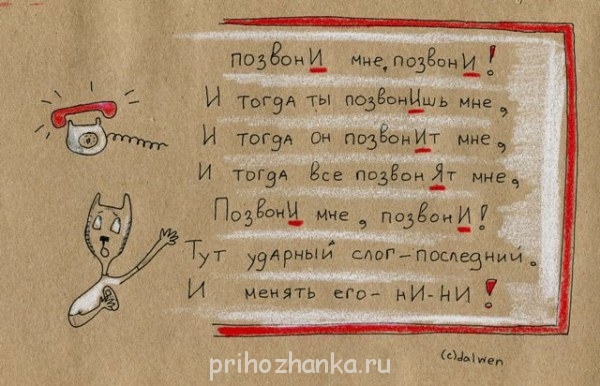 позвонИ мне, позвонИ!
И тогда ты позвонИшь мне,
И тогда он позвонИт мне,
И тогда все позвонЯт мне,
ПозвонИ мне, позвонИ!
Тут ударный слог – последний.
И менять его – нИ-нИ!
(c)dalwen
prihozhanka.ru